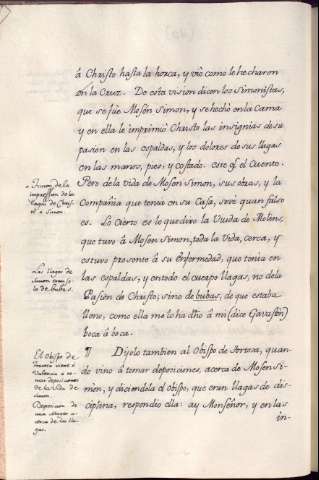 â Christo hasta la horca, y vio como le hecharon
en la Cruz. De esta vision dicen los Simonistas,
que se fue Mosén Simon, y se hechó en la Cama
y en ella le imprimió Christo las insignias de su
pasion en las espaldas, y los dolores de sus llagas
en las manos, pies, y costado. este es el Cuento.
Pero de la vida de Mosen Simon, sus obras, y la
Compañia que tenia en su Casa, sevè quan falso
es. Lo Cierto es lo que dixo la Viuda de Molens,
que tuvo â Mosen Simon, toda la Vida, cerca, y
estuvo presente â su enfermedad, que tenia en
las espaldas, y en todo el cuerpo llagas, no de la
Pasion de Christo; sino de bubas, de que estaba
lleno, como ella me lo ha dho â mi (dice Gavastón)
boca â boca.
¶ Dijolo tambien al Obispo de Tortosa, quan-
do vino â tomar deposiciones, acerca de Mosen Si-
mon, y diciendola el obispo, que eran llagas de dis-
ciplina, respondió ella: ay Monseñor, y en las
in-
Ficcion de la
impresion de las
llagas de Chris-
to a Simon.
Las llagas de
Simon eran so-
lo de bubas.
El Obispo de
Tortosa viene à
Valencia a to-
mar deposiciones
de la Vida de
Simon.
Deposicion de
una Muger a-
cerca de las lla-
gas.